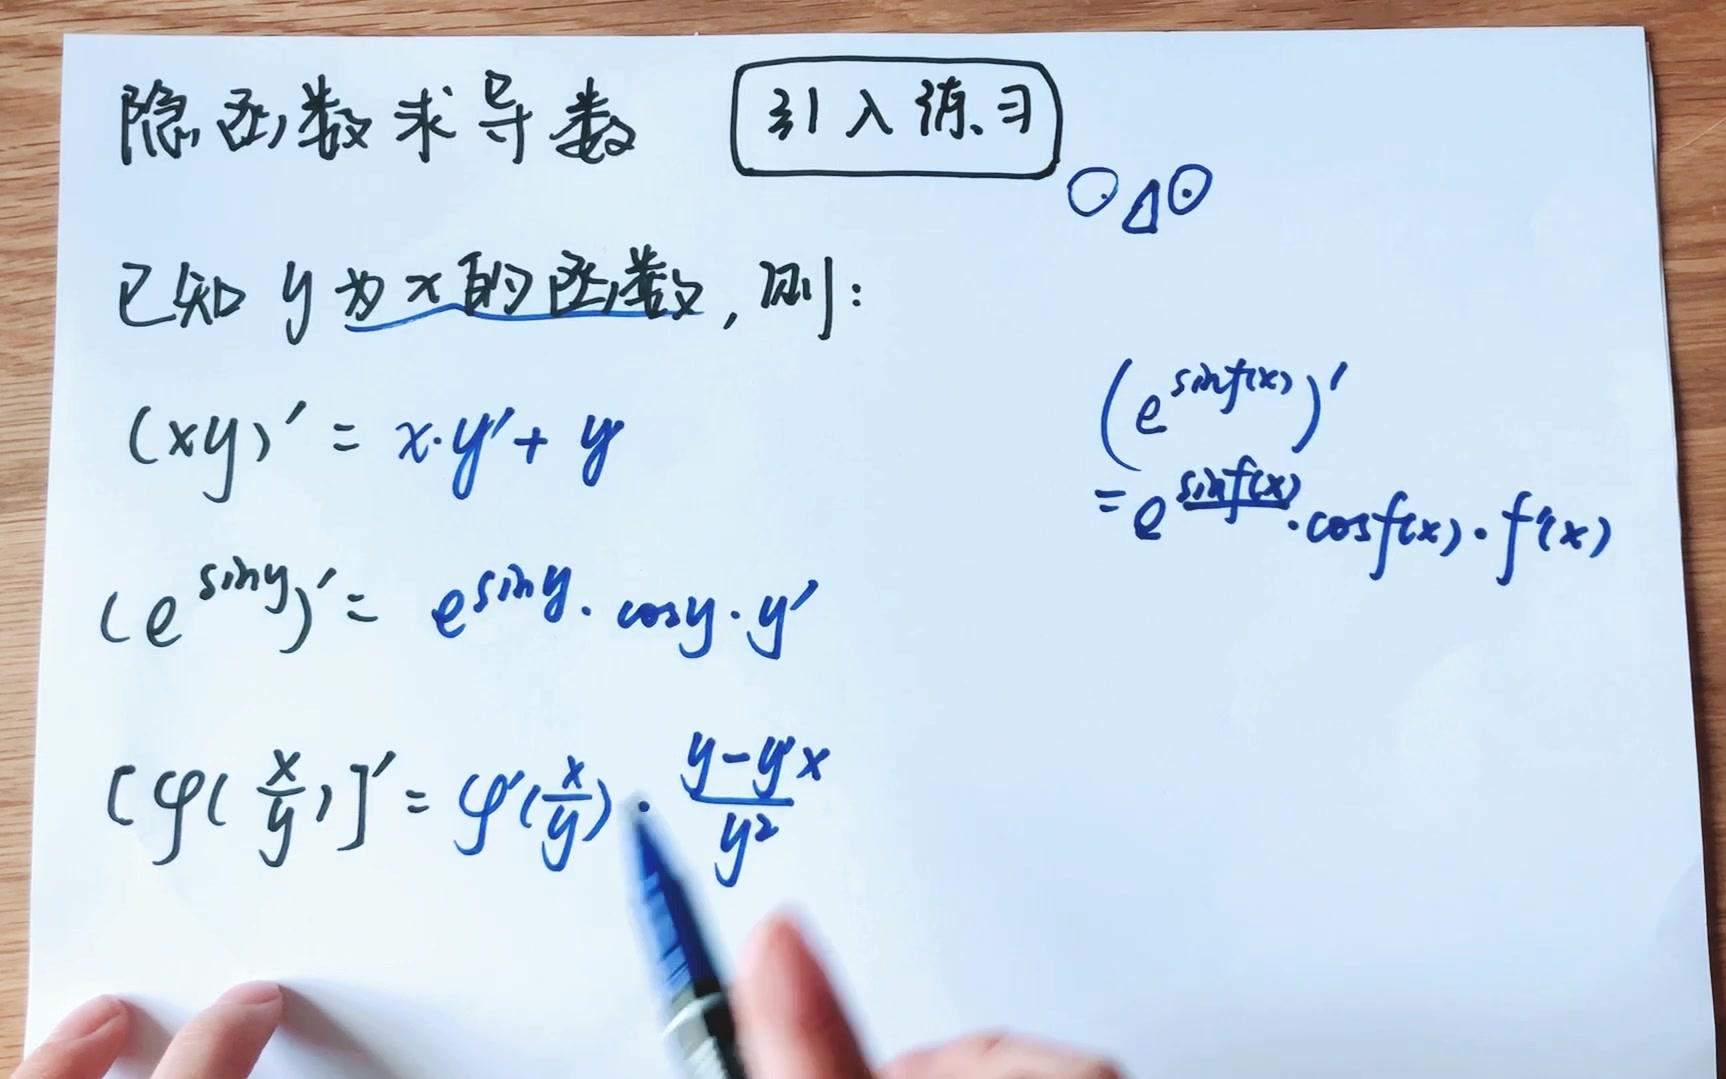 隐函数求导数 引入练习
已知 y 为 x 的函数, 则:
(xy)' = x·y' + y
(e^{sin y})' = e^{sin y}·cos y·y'
[φ(x/y)]' = φ'(x/y)·(y-y'x)/y²
(e^{sin f(x)})'
= e^{sin f(x)}·cos f(x)·f'(x)